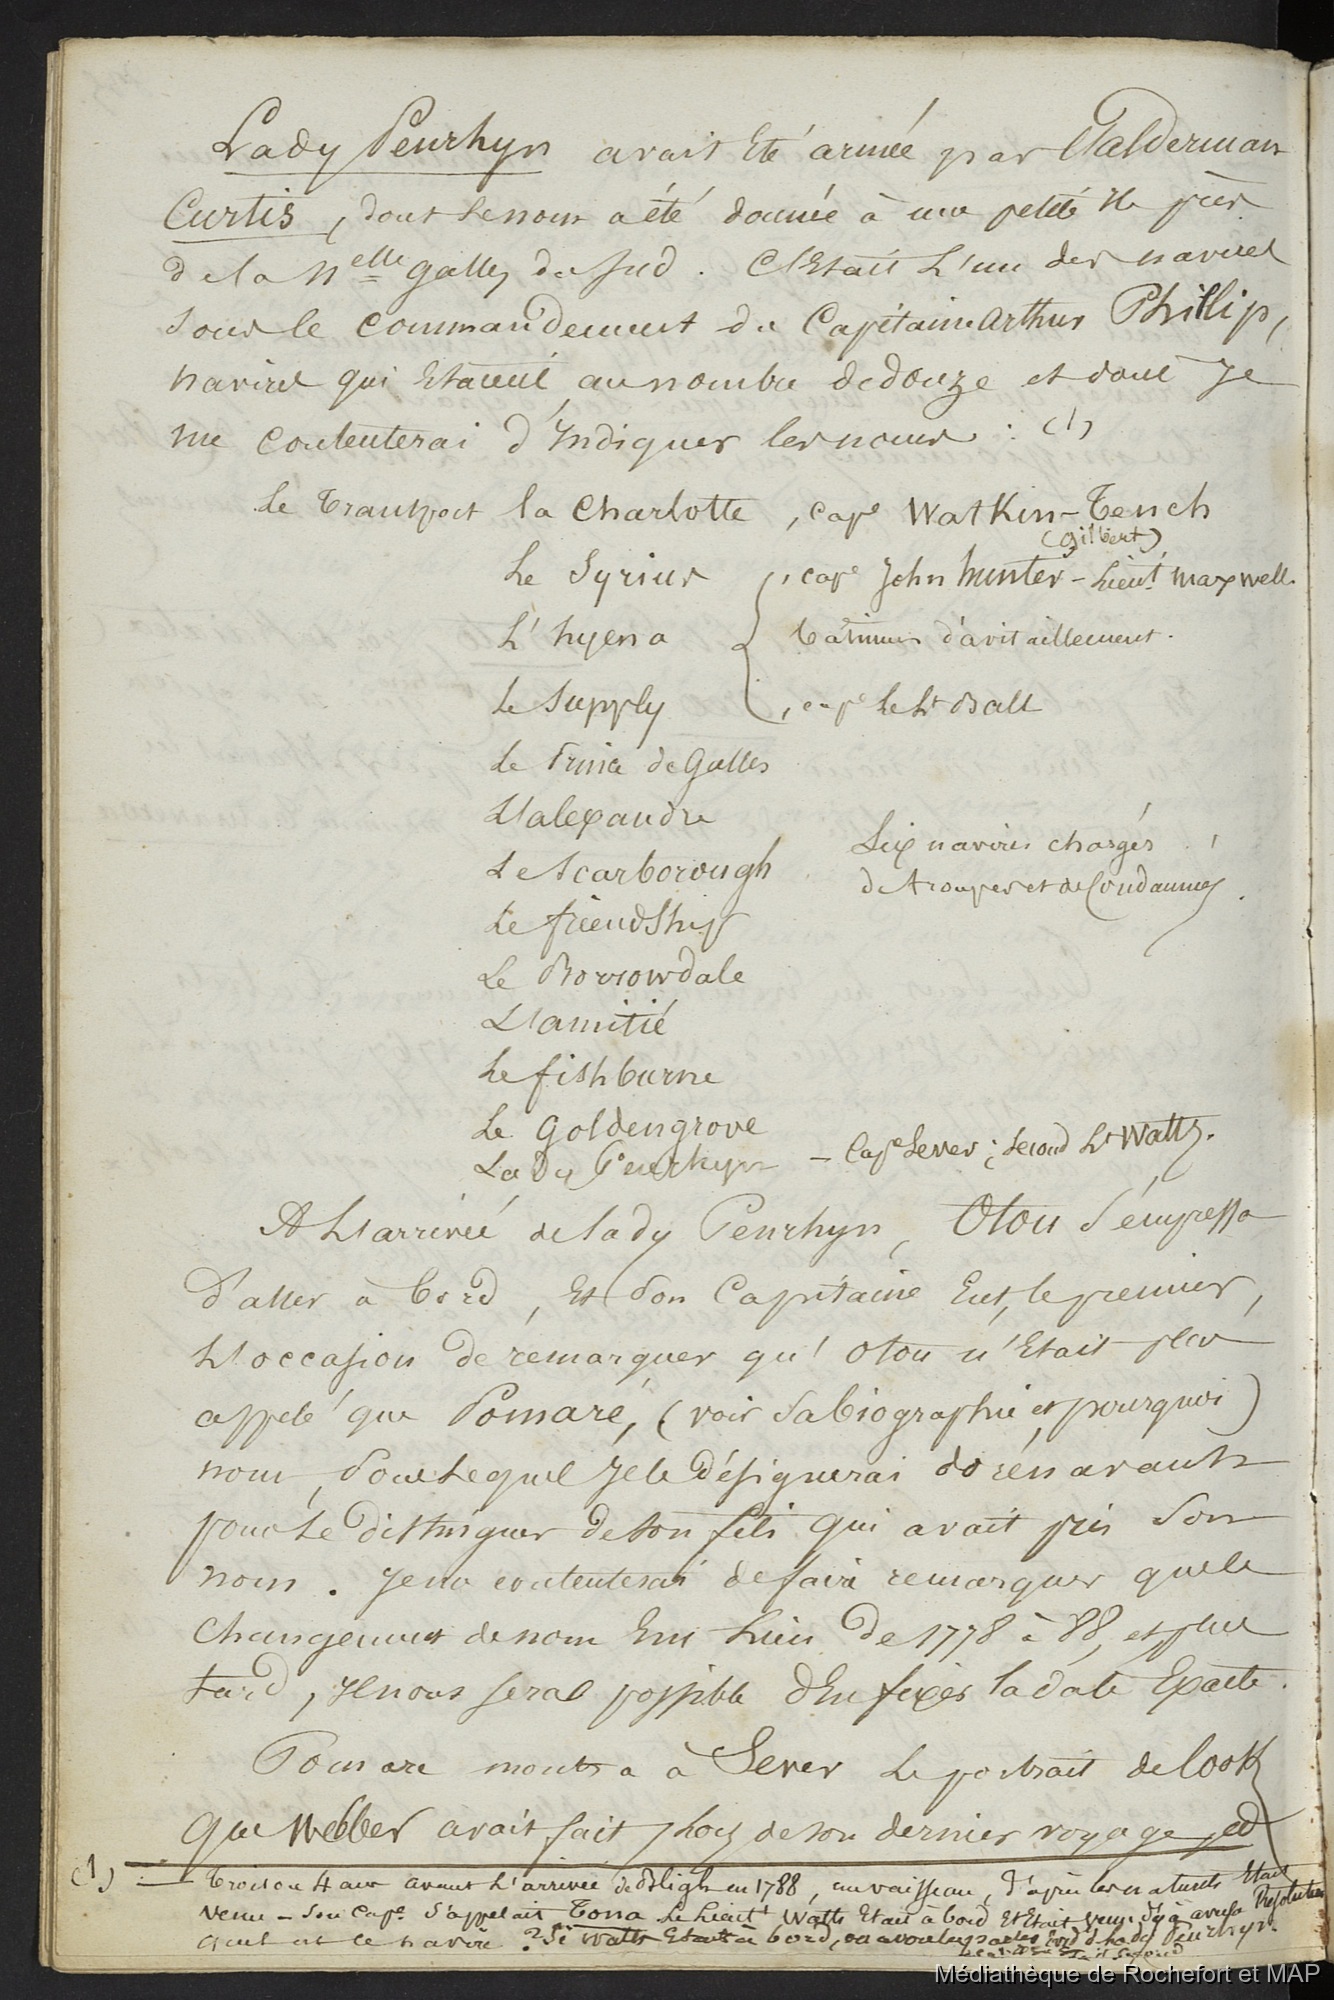 Lady Penrhyn avait Eté armée par l'alderman
Curtis, dont le nom a été donnée à une petite île près
de la Nelle galles du Sud. C'Etait L'un des navires
sous le commandement du Capitaine Arthur Phillip,
navires qui Etaient au nombre de douze et dont Je
me contenterai d'Indiquer les noms : (1)
Le Transport la Charlotte, cape Watkin-Tench
(Gilbert)
Le Syrius , cape John hunter - Lieut maxwell.
L'hyena batimens d'avitaillement.
Le Supply , cape le Lt Ball
Le Prince de Galles
L'alexandre
Le Scarborough
Six navires chargés
de troupes et de Condamnés.
Le friendship
Le Borrowdale
L'amitié
Le fishburne
Le Goldengrove
Lady Penrhyn - Cape Sever ; second Lt Watts.
A L'arrivée de lady Penrhyn, Otou s'empressa
d'aller à bord, Et son Capitaine Eut, le premier,
L'occasion de remarquer qu'Otou n'Etait plus
appelé que Pomaré, (voir sa biographie et pourquoi)
nom, sous Lequel Je le désignerai dorénavant
pour Le distinguer de son fils qui avait pris son
nom. Je me contenterai de faire remarquer que le
changement de nom Eut Lieu de 1778 à 88, et plus
tard, Il nous sera possible d'En fixer la date Exacte.
Pomare montra à Sever Le portrait de Cook
que Webber avait fait lors de son dernier voyage, et
(1) Trois ou 4 ans avant L'arrivée de Bligh en 1788, un vaisseau, d'après les naturels Etait
venu - son Cape s'appelait Tona Le Lieutt Watts Etait à bord Et Etait venu déjà avec la Resolution
quel est ce navire ? Si Watts Etait à bord, on a voulu parler du Lady Penrhyn.
Médiathèque de Rochefort et MAP